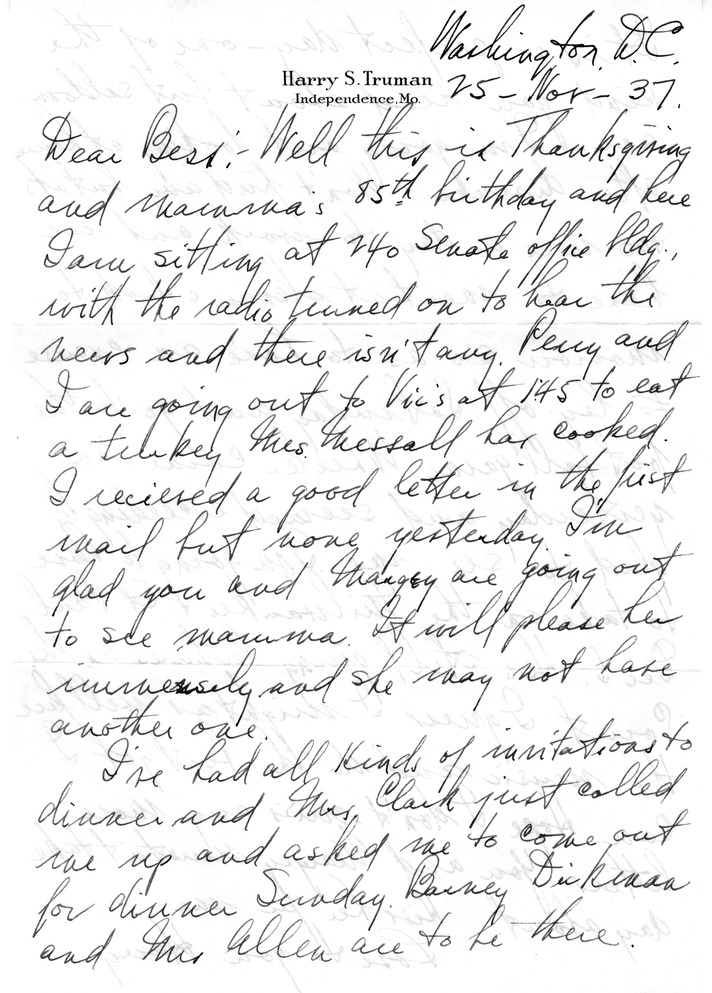 Washington, D.C.
Harry S. Truman
Independence, Mo.
25-Nov-37.
Dear Bess:- Well this is Thanksgiving
and mamma's 85th birthday and here
I am sitting at 240 Senate office bldg.,
with the radio turned on to hear the
news and there isn't any. Perry and
I are going out to Vic's at 1:45 to eat
a turkey Mrs. Messall has cooked.
I recieved a good letter in the first
mail but none yesterday. I'm
glad you and Margey are going out
to see mamma. It will please her
immensely and she may not have
another one.
I've had all kinds of invitations to
dinner and Mrs. Clark just called
me up and asked me to come out
for dinner Sunday. Barney Dickman
and Mrs Allen are to be there.